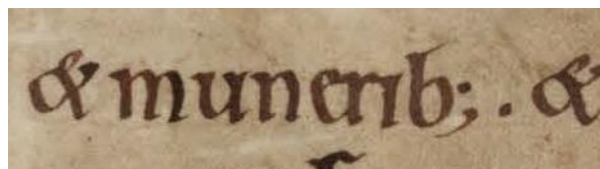 & munerib; . &